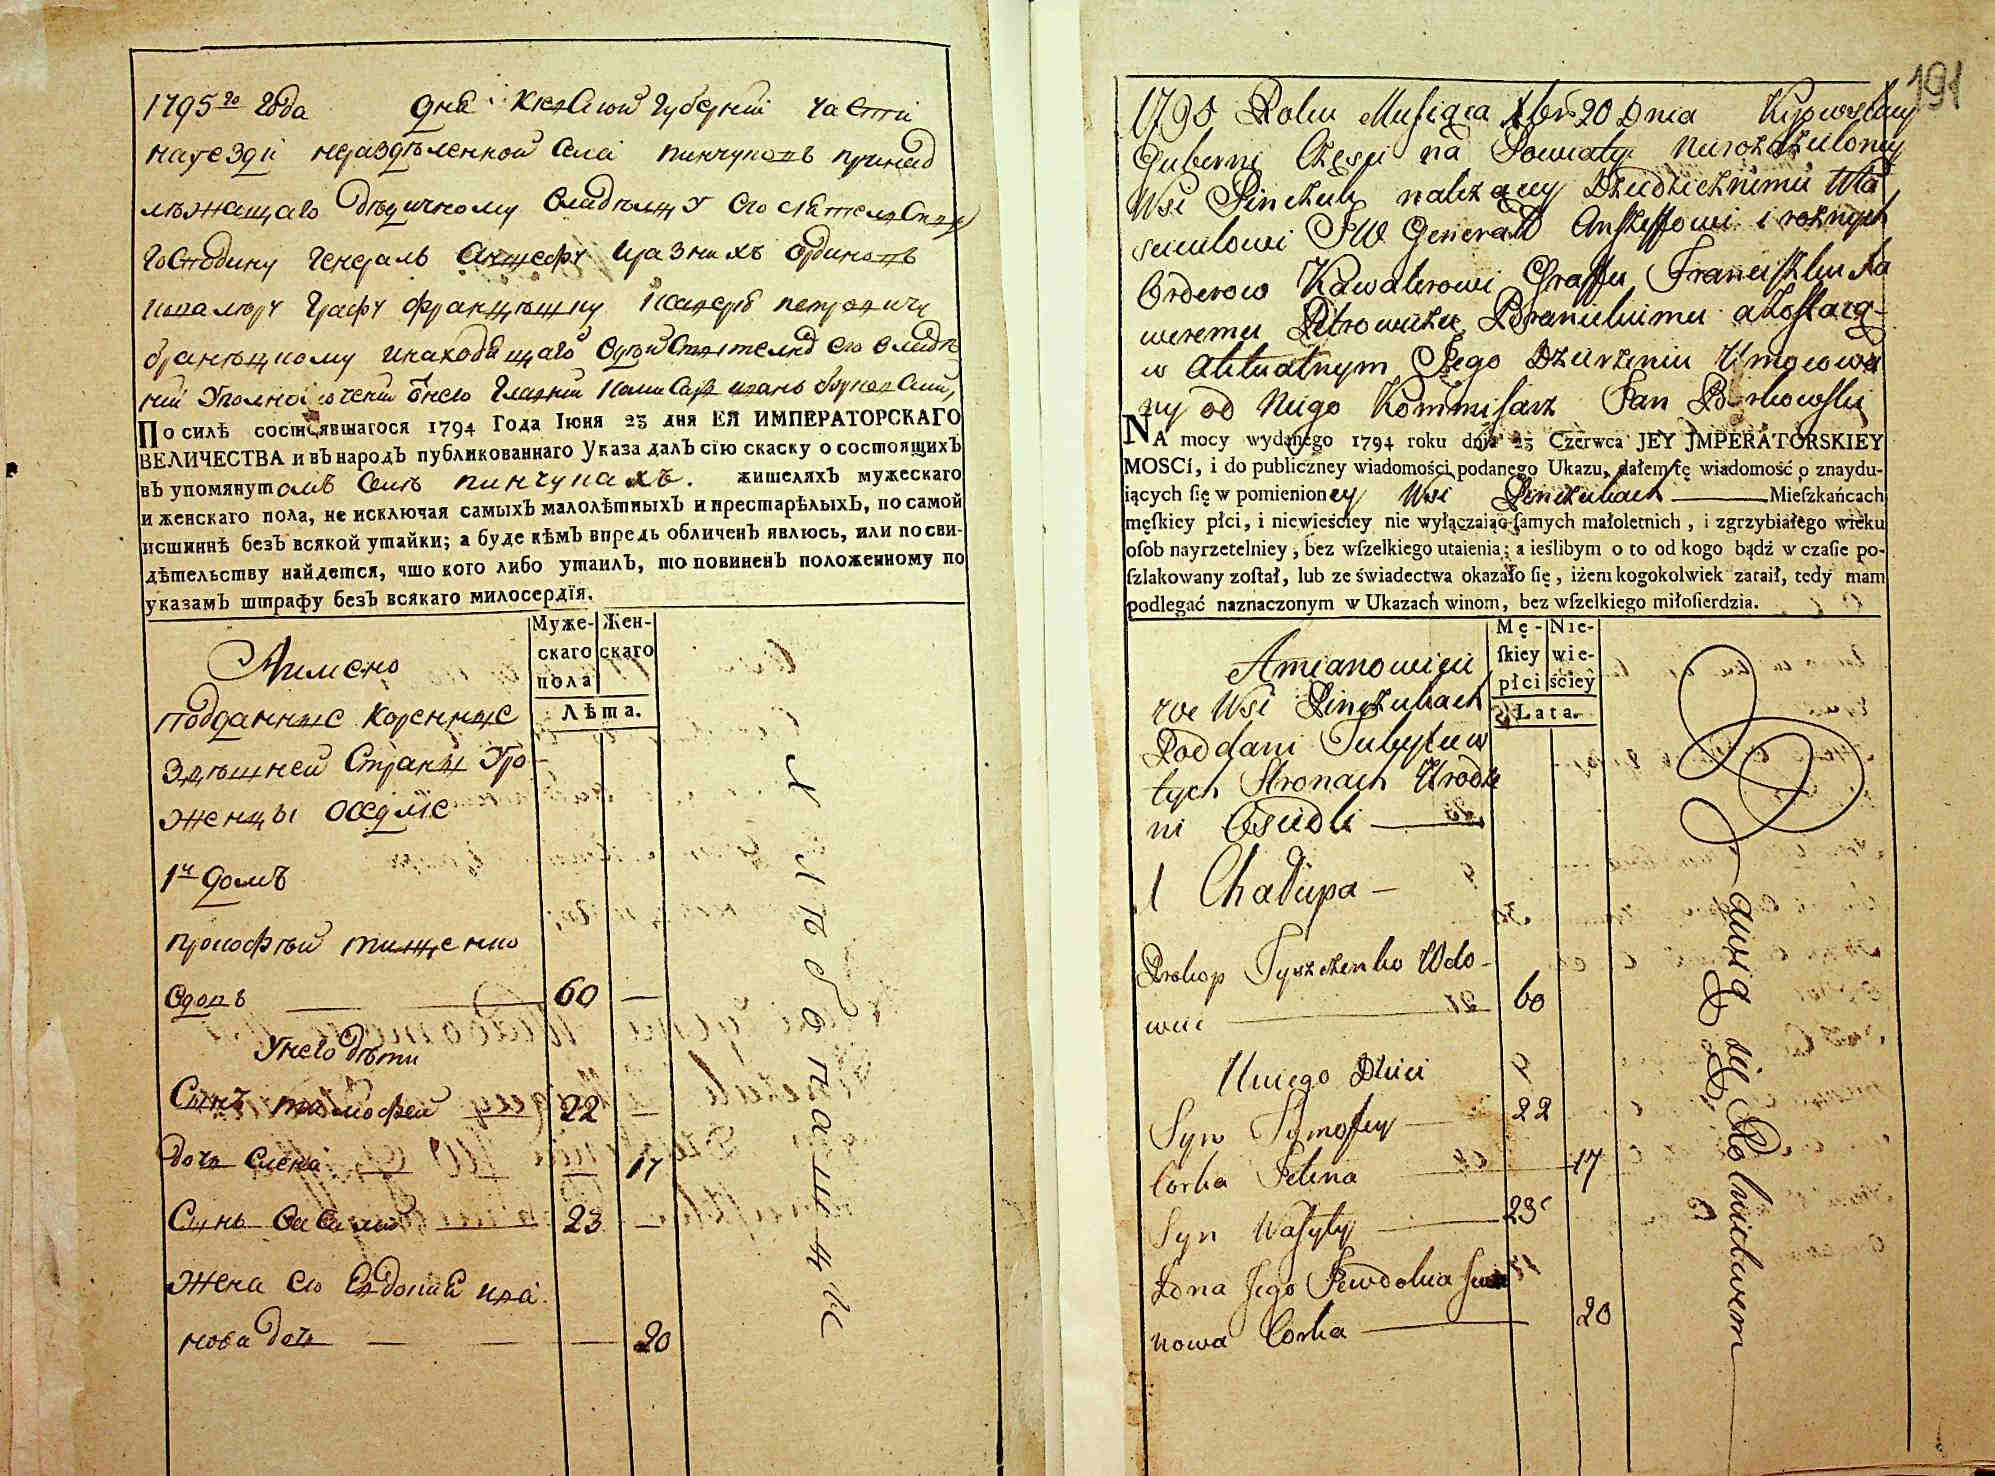 1795го Года дня Киевской Губернии части
на уезди неразделенной села Пинчуковъ принад
лежащаго дедичному владелцу его сиятелству
Господину Генералъ Аншефу и разныхъ ординовъ
кавалеру Графу Францышку Ксаверю Петровичу
Браныцкому и находящаго
Іваномъ
По силѣ состоявшагося 1794 Года Іюня 23 дня ЕЯ ИМПЕРАТОРСКАГО
ВЕЛИЧЕСТВА и въ народъ публикованнаго Указа далъ сію скаску о состоящихъ
въ упомянутомъ селѣ Пинчукахъ. жителяхъ мужескаго
и женскаго пола, не исключая самыхъ малолѣтныхъ и престарѣлыхъ, по самой
истиннѣ безъ всякой утайки; а буде кѣмъ впредь обличенъ явлюсь, или по сви-
дѣтельству найдется, что кого либо утаилъ, то повиненъ положенному по
указамъ штрафу безъ всякаго милосердія.
Муже- Жен-
скаго скаго
пола
Лѣта.
А имено
подданные коренные
здешней страны уро
женцы оседлие
1й домъ
Прокофей Тищенко
вдовъ 60 —
У него дети
Сынъ Тимофей 22
дочь Елена 17
Сынъ Василий 23
Жена его Евдокия Ива
нова дочь 20
Ляховецкий
191
1795 Roku Miesiąca Xbra 20 Dnia Kijowskiey
Guberni Części na Powiaty nierozdzieloney
Wsi Pinczuk należącey Dziedzicznemu Wła
scicielowi JW Generał Anszeffowi i roznych
Orderow Kawalerowi Graffu Franciszku Xa
weremu Petrowiczu Branickiemu a zostaią-
w Aktualnym Jego Dzierżeniu Umocowa
ny od Niego Kommisarz Pan Borkowski
NA mocy wydanego 1794 roku dnia 23 Czerwca JEY JMPERATORSKIEY
MOSCi, i do publiczney wiadomości podanego Ukazu, dałem tę wiadomość o znaydu-
iących ſię w pomienioney Wsi Pinczukach Mieſzkańcach
męſkiey płci, i niewieściey nie wyłączaiąc ſamych małoletnich, i zgrzybiałego wieku
oſob nayrzetelniey, bez wſzelkiego utaienia; a ieślibym o to od kogo bądź w czaſie po-
ſzlakowany zoſtał, lub ze świadectwa okazało ſię, iżem kogokolwiek zataił, tedy mam
podlegać naznaczonym w Ukazach winom, bez wſzelkiego miłoſierdzia.
Mę- Nie-
ſkiey wie-
płci ściey
Lata.
A mianowicie
we Wsi Pinczukach
Poddani Tubylcy w
tych Stronach Urodze
ni Osiedli
1 Chałupa —
Prokop Tyszczenko Wdo-
wiec 60
U niego Dzieci
Syn Tymofiey 22
Corka Jelena 17
Syn Wasyly 23
Zona Jego Jewdokia Jwa
nowa Corka 20